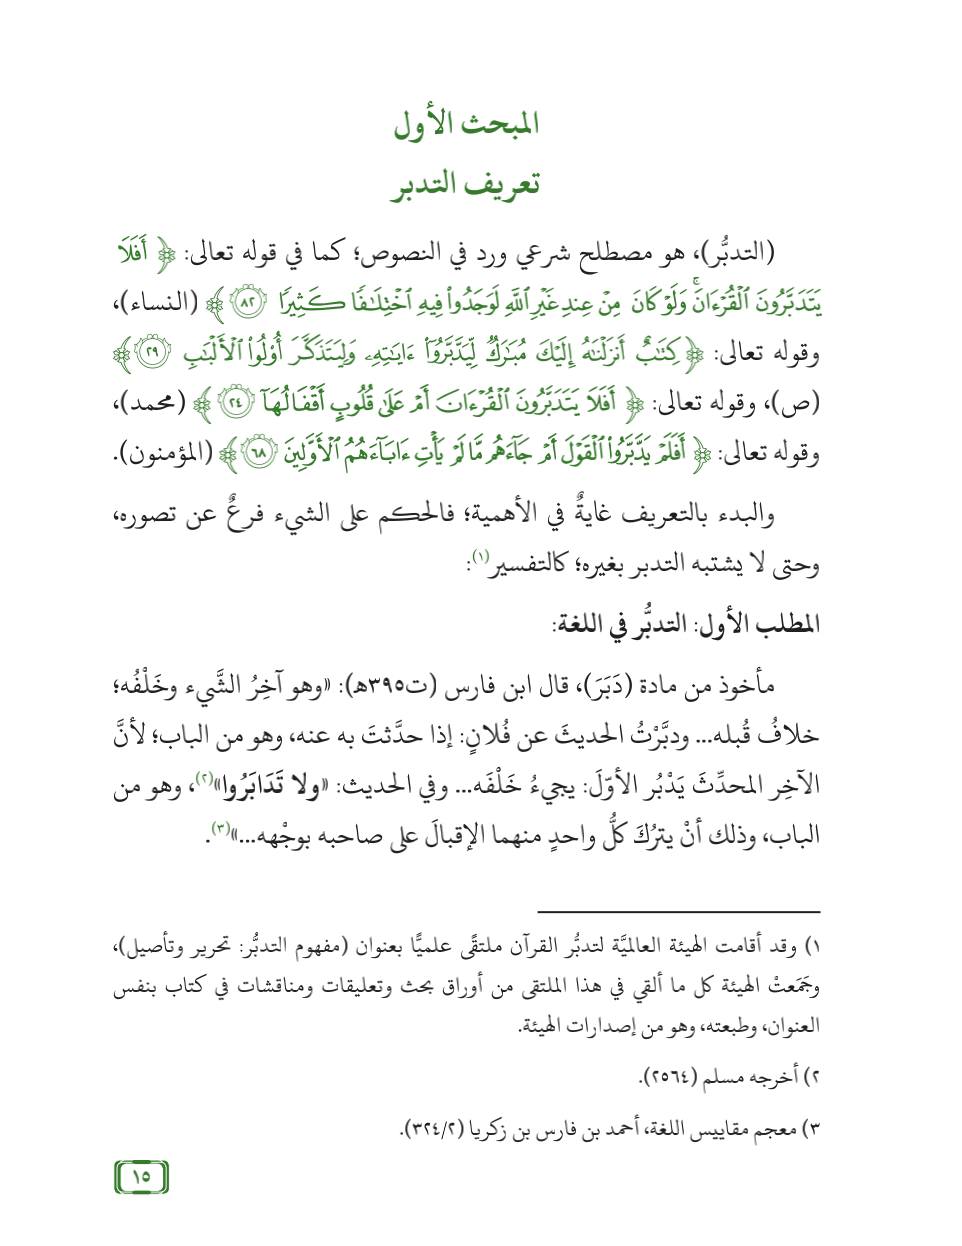 المبحث الأول
تعريف التدبر
(التدبُّر)، هو مصطلح شرعي ورد في النصوص؛ كما في قوله تعالى: ﴿ أَفَلَا
يَتَدَبَّرُونَ ٱلْقُرْءَانَۚ وَلَوْ كَانَ مِنْ عِندِ غَيْرِ ٱللَّهِ لَوَجَدُوا۟ فِيهِ ٱخْتِلَٰفًا كَثِيرًا ٨٢ ﴾ (النساء)،
وقوله تعالى: ﴿ كِتَٰبٌ أَنزَلْنَٰهُ إِلَيْكَ مُبَٰرَكٌ لِّيَدَّبَّرُوٓا۟ ءَايَٰتِهِۦ وَلِيَتَذَكَّرَ أُو۟لُوا۟ ٱلْأَلْبَٰبِ ٢٩ ﴾
(ص)، وقوله تعالى: ﴿ أَفَلَا يَتَدَبَّرُونَ ٱلْقُرْءَانَ أَمْ عَلَىٰ قُلُوبٍ أَقْفَالُهَآ ٢٤ ﴾ (محمد)،
وقوله تعالى: ﴿ أَفَلَمْ يَدَّبَّرُوا۟ ٱلْقَوْلَ أَمْ جَآءَهُم مَّا لَمْ يَأْتِ ءَابَآءَهُمُ ٱلْأَوَّلِينَ ٦٨ ﴾ (المؤمنون).
والبدء بالتعريف غايةٌ في الأهمية؛ فالحكم على الشيء فرعٌ عن تصوره،
وحتى لا يشتبه التدبر بغيره؛ كالتفسير(١):
المطلب الأول: التدبُّر في اللغة:
مأخوذ من مادة (دَبَرَ)، قال ابن فارس (ت٣٩٥هـ): «وهو آخِرُ الشَّيء وخَلْفُه؛
خلافُ قُبله... ودبَّرْتُ الحديثَ عن فُلانٍ: إذا حدَّثتَ به عنه، وهو من الباب؛ لأنَّ
الآخِر المحدِّثَ يَدْبُر الأوّلَ: يجيءُ خَلْفَه... وفي الحديث: «ولا تَدَابَرُوا»(٢)، وهو من
الباب، وذلك أنْ يترُكَ كلُّ واحدٍ منهما الإقبالَ على صاحبه بوجْهه...»(٣).
١) وقد أقامت الهيئة العالميَّة لتدبُّر القرآن ملتقًى علميًّا بعنوان (مفهوم التدبُّر: تحرير وتأصيل)،
وجَمَعتْ الهيئة كل ما ألقي في هذا الملتقى من أوراق بحث وتعليقات ومناقشات في كتاب بنفس
العنوان، وطبعته، وهو من إصدارات الهيئة.
٢) أخرجه مسلم (٢٥٦٤).
٣) معجم مقاييس اللغة، أحمد بن فارس بن زكريا (٣٢٤/٢).
١٥